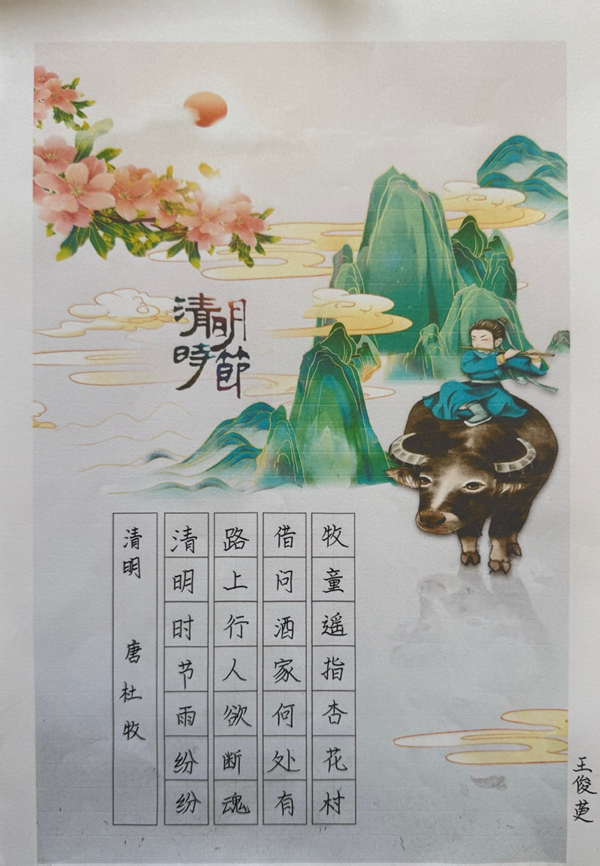 清明時節
清明 唐 杜牧
清明时节雨纷纷
路上行人欲断魂
借问酒家何处有
牧童遥指杏花村
王俊